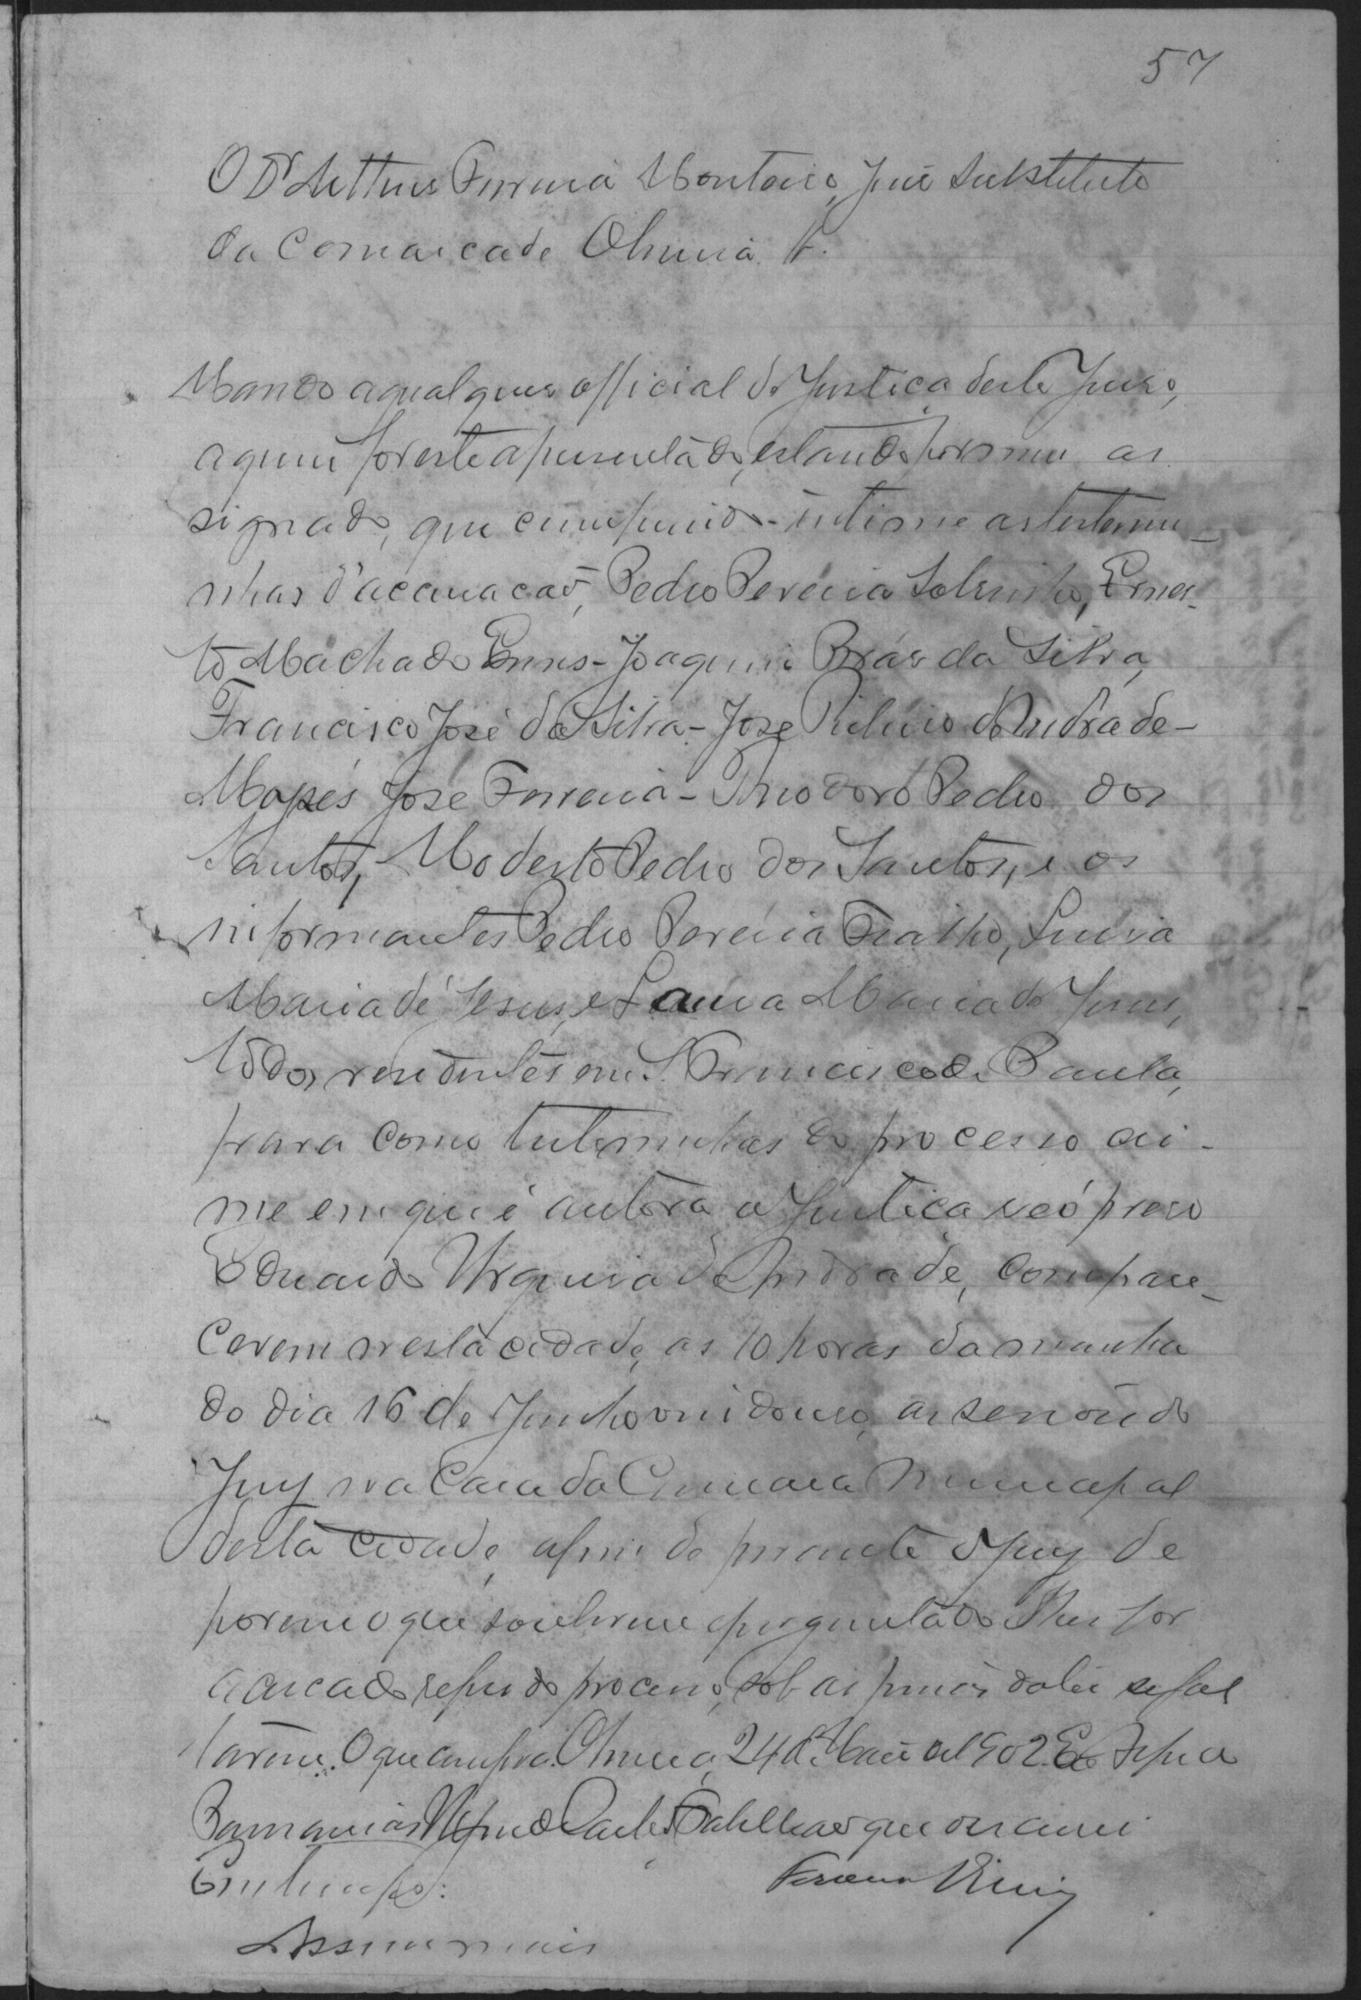 57
O Dr Ferreira Monteiro, Juiz Substituto
da Comarca de Oliveira &.
Mando a qualquer official de Justiça deste Juiso,
a quem for este apresentado, estando por mim as
signado, que cumprindo-intime as testemu-
nhas d'accusacaõ, Pedro Pereira Sobrinho, Ernes-
to Machado Joaquim Bráz da Silva,
Francisco José da Silva-José de Andrade-
Moysés José Ferreira-Theodoro Pedro dos
Santos, Modesto Pedro dos Santos, e os
informantes Pedro Pereira Fialho, Luisa
Maria de Jesus, e Laura Maria de Jesus,
todos residentes em S. Francisco de Paula,
para como testeminhas do processo cri-
me em que é autora a Justiça e reó preso
Eduardo Urquisa de Andrade, compare-
cerem nesta cidade, as 10 horas da manhã
do dia 16 de Junho vindouro, as sessões do
Jury na Casa da Camara Municipal
desta cidade, afim de perante o Jury de
porem o que souberem e perguntado lhes for
acerca do referido processo, sob as penas da lei se fal
tarem. O que cumpra. Oliveira, 24 de Maio de 1902. Eu
que escrevi
Ferreira